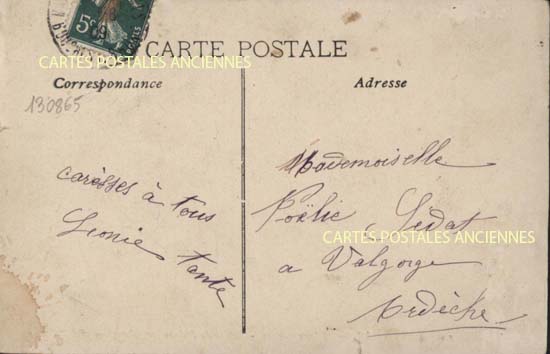 CARTE POSTALE
CARTES POSTALES ANCIENNES
Correspondance
Adresse
130865
5c
caresses à tous
Leonie
Tante
Mademoiselle
Noëlie Sedat
CARTES POSTALES ANCIENNES
a Valgorge
Ardèche